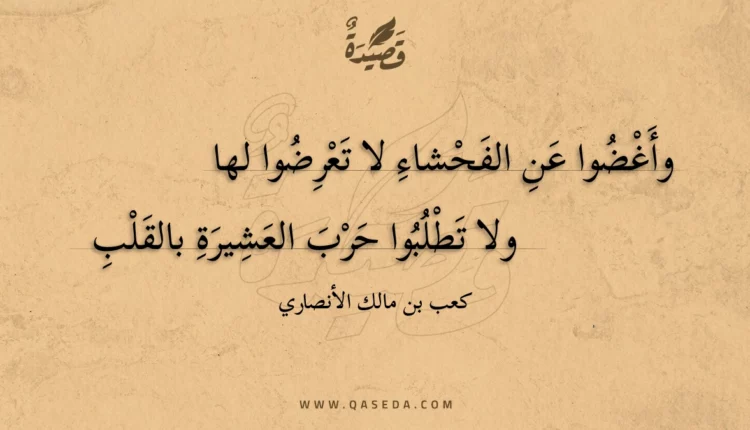 قَصِيدَةٌ
وأَغْضُوا عَنِ الفَحْشاءِ لا تَعْرِضُوا لها
ولا تَطْلُبُوا حَرْبَ العَشِيرَةِ بالقَلْبِ
كعب بن مالك الأنصاري
WWW.QASEDA.COM